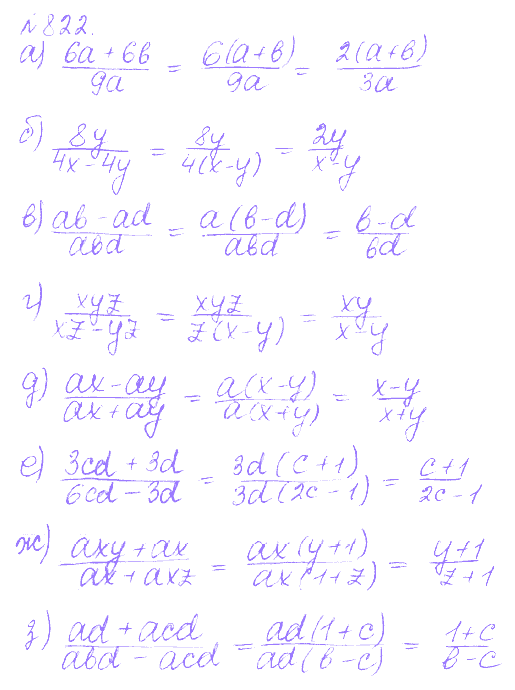 №822.
а) (6a + 6b)/(9a) = (6(a+b))/(9a) = (2(a+b))/(3a)
б) (8y)/(4x-4y) = (8y)/(4(x-y)) = (2y)/(x-y)
в) (ab-ad)/(abd) = (a(b-d))/(abd) = (b-d)/(bd)
г) (xyz)/(xz-yz) = (xyz)/(z(x-y)) = (xy)/(x-y)
д) (ax-ay)/(ax+ay) = (a(x-y))/(a(x+y)) = (x-y)/(x+y)
е) (3cd+3d)/(6cd-3d) = (3d(c+1))/(3d(2c-1)) = (c+1)/(2c-1)
ж) (axy+ax)/(ax+axz) = (ax(y+1))/(ax(1+z)) = (y+1)/(z+1)
з) (ad+acd)/(abd-acd) = (ad(1+c))/(ad(b-c)) = (1+c)/(b-c)